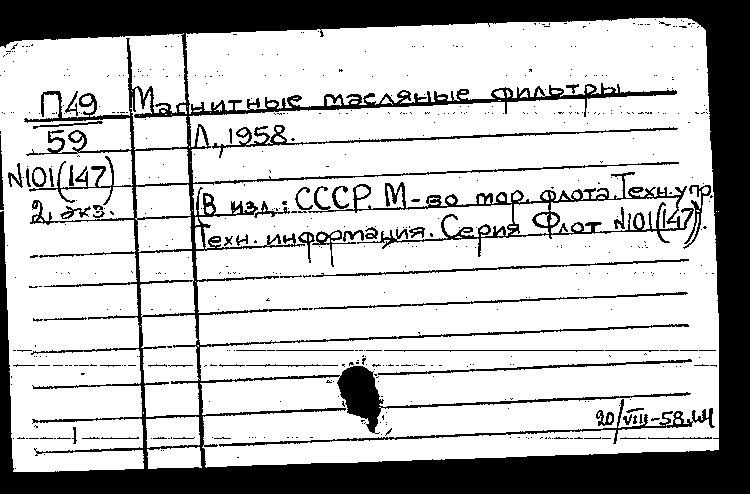 П49 Магнитные масляные фильтры
59 Л., 1958.
N101(147)
2 экз. (В изд.: СССР. М-во мор. флота. Техн. упр.
Техн. информация. Серия Флот N101(147)).
20/VIII-58.